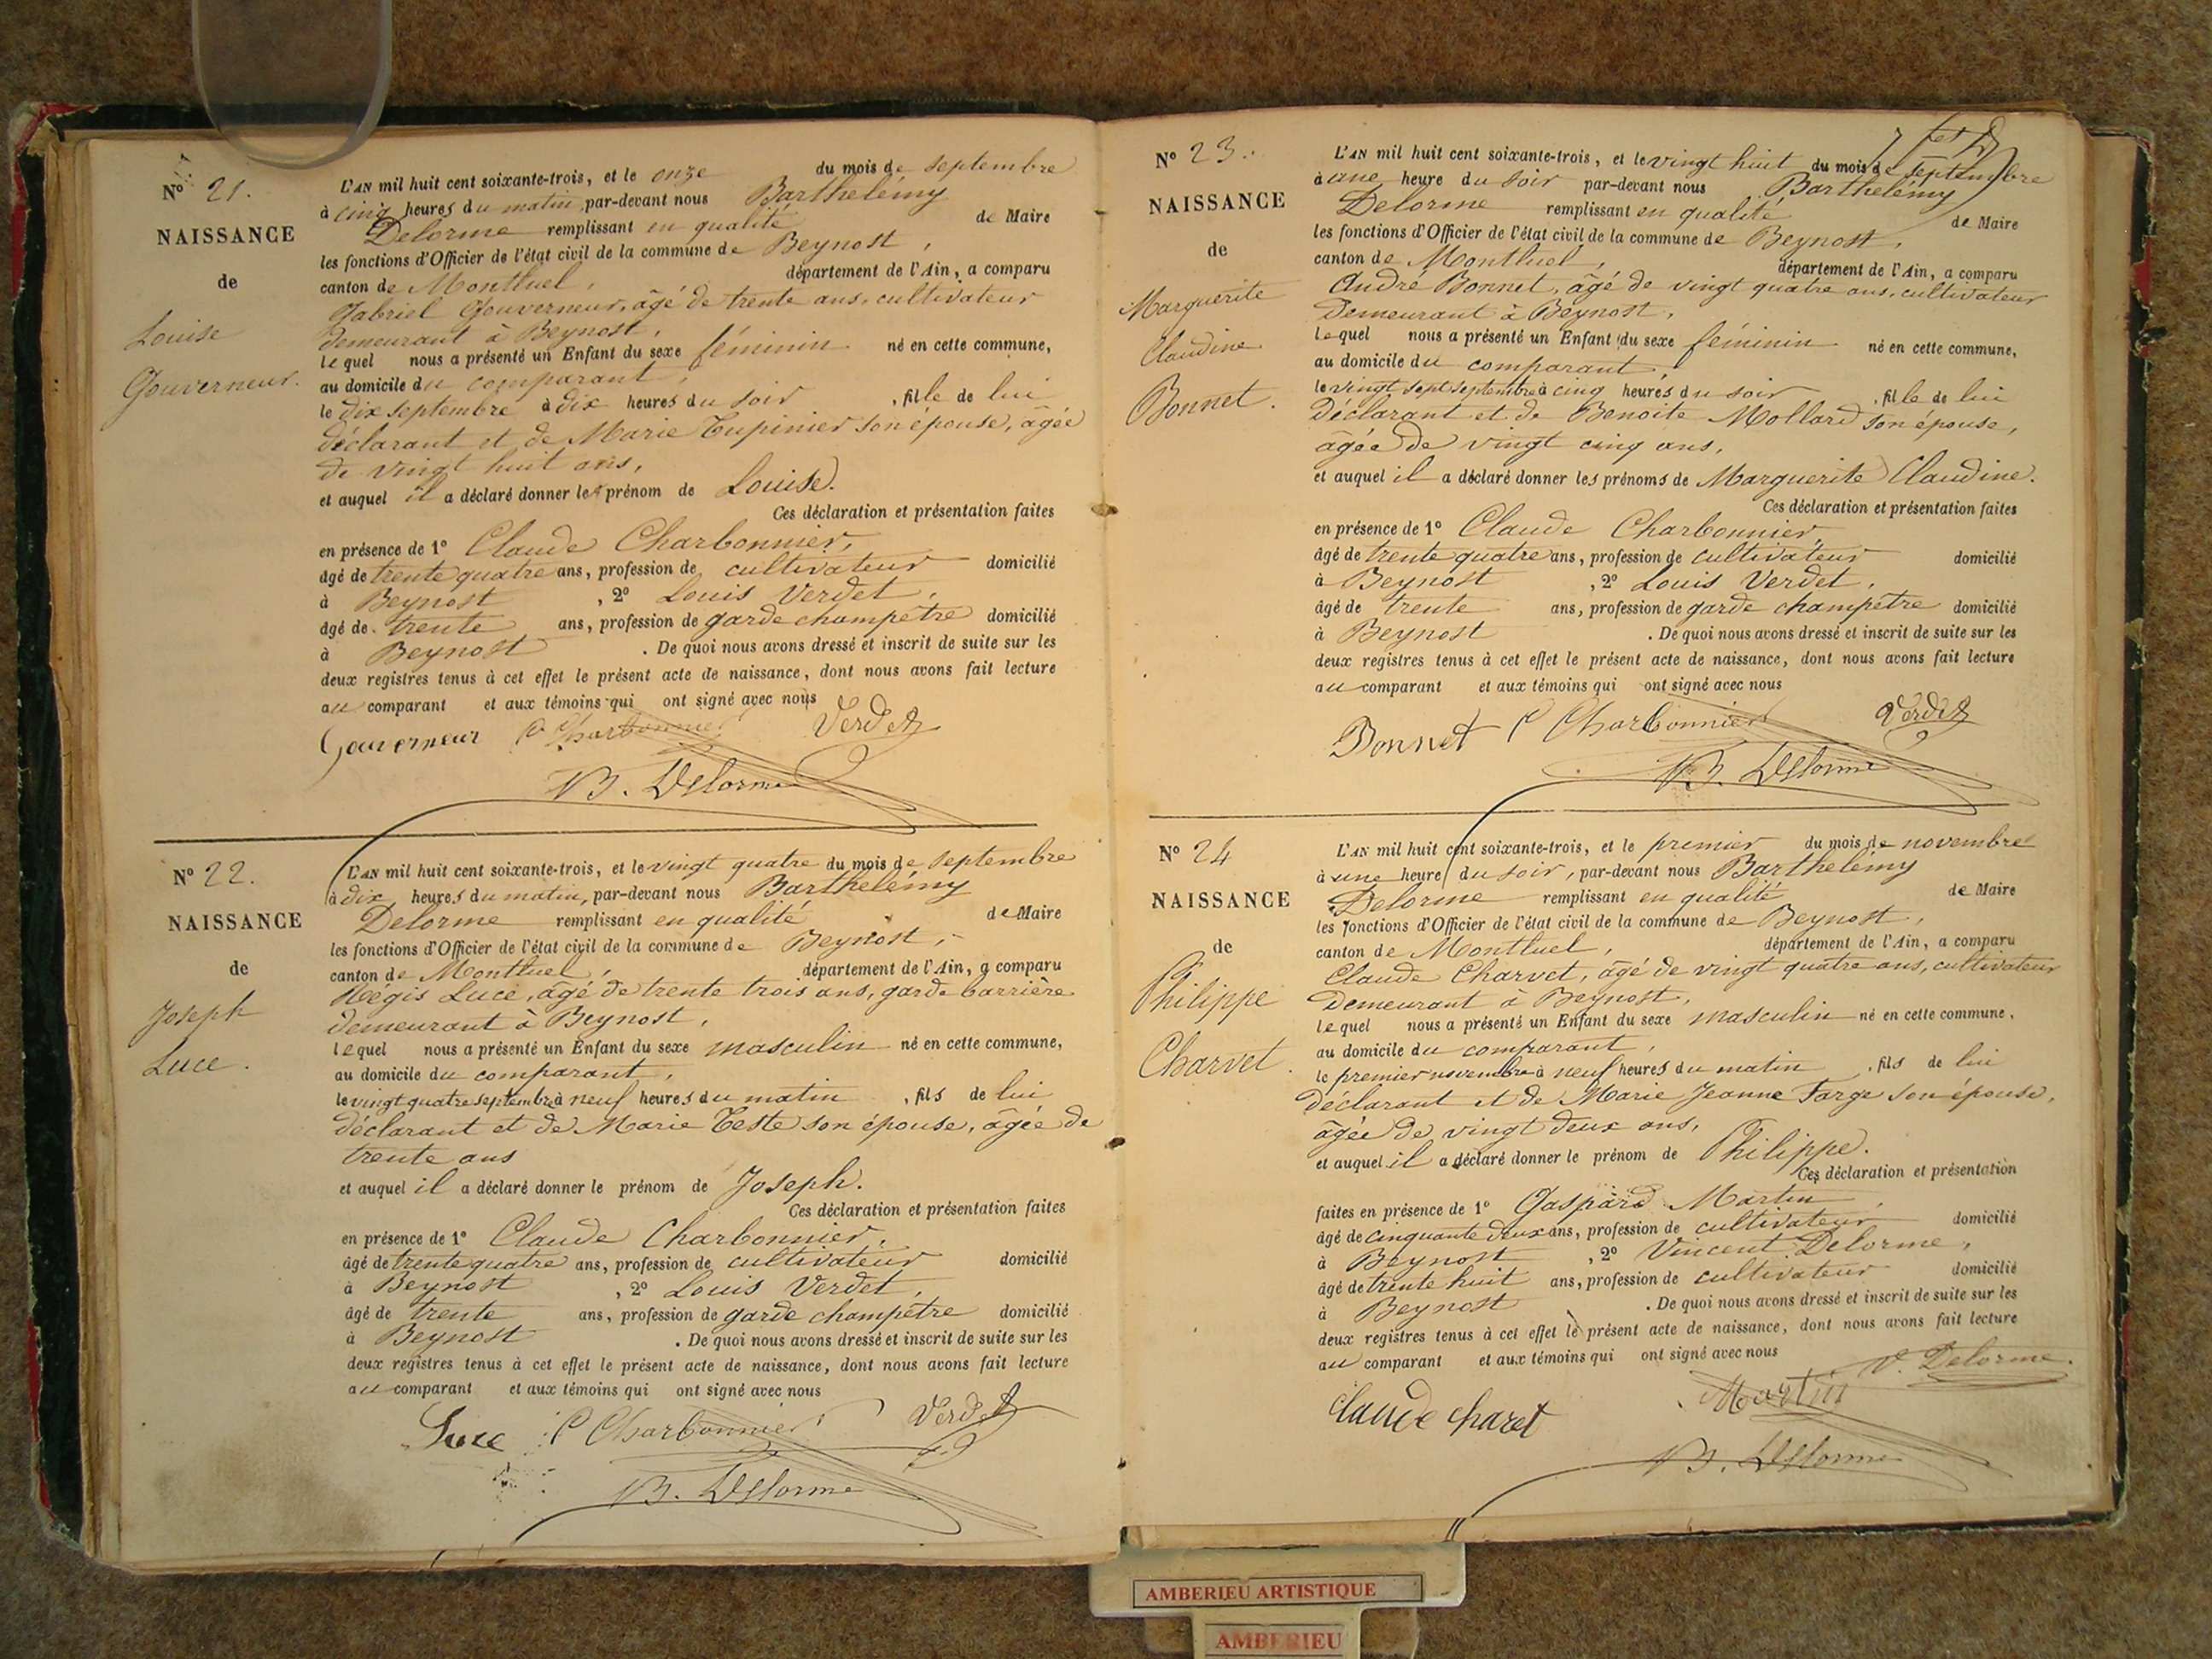 No 21.
NAISSANCE
de
Louise
Gouverneur.
L'AN mil huit cent soixante-trois, et le onze du mois de septembre
à cinq heures du matin par-devant nous Barthelémy
Delorme remplissant en qualité de Maire
les fonctions d'Officier de l'état civil de la commune de Beynost,
canton de Montluel, département de l'Ain, a comparu
Gabriel Gouverneur, âgé de trente ans, cultivateur
demeurant à Beynost,
lequel nous a présenté un Enfant du sexe féminin né en cette commune,
au domicile du comparant,
le dix septembre à dix heures du soir, fille de lui
déclarant et de Marie Tupinier son épouse, âgée
de vingt huit ans,
et auquel il a déclaré donner le prénom de Louise.
Ces déclaration et présentation faites
en présence de 1º Claude Charbonnier,
âgé de trente quatre ans, profession de cultivateur domicilié
à Beynost, 2º Louis Verdet,
âgé de trente ans, profession de garde champêtre domicilié
à Beynost. De quoi nous avons dressé et inscrit de suite sur les
deux registres tenus à cet effet le présent acte de naissance, dont nous avons fait lecture
au comparant et aux témoins qui ont signé avec nous
Gouverneur C Charbonnier Verdet
B. Delorme
No 22.
NAISSANCE
de
Joseph
Luce.
L'AN mil huit cent soixante-trois, et le vingt quatre du mois de septembre
à dix heures du matin, par-devant nous Barthelémy
Delorme remplissant en qualité de Maire
les fonctions d'Officier de l'état civil de la commune de Beynost,
canton de Montluel, département de l'Ain, a comparu
Régis Luce, âgé de trente trois ans, garde barrière
demeurant à Beynost,
lequel nous a présenté un Enfant du sexe masculin né en cette commune,
au domicile du comparant,
le vingt quatre septembre à neuf heures du matin, fils de lui
déclarant et de Marie Teste son épouse, âgée de
trente ans
et auquel il a déclaré donner le prénom de Joseph.
Ces déclaration et présentation faites
en présence de 1º Claude Charbonnier,
âgé de trente quatre ans, profession de cultivateur domicilié
à Beynost, 2º Louis Verdet,
âgé de trente ans, profession de garde champêtre domicilié
à Beynost. De quoi nous avons dressé et inscrit de suite sur les
deux registres tenus à cet effet le présent acte de naissance, dont nous avons fait lecture
au comparant et aux témoins qui ont signé avec nous
Luce C Charbonnier Verdet
B. Delorme
No 23.
NAISSANCE
de
Marguerite
Claudine
Bonnet.
L'AN mil huit cent soixante-trois, et le vingt huit du mois de septembre
à une heure du soir par-devant nous Barthelémy
Delorme remplissant en qualité de Maire
les fonctions d'Officier de l'état civil de la commune de Beynost,
canton de Montluel, département de l'Ain, a comparu
André Bonnet, âgé de vingt quatre ans, cultivateur
demeurant à Beynost,
lequel nous a présenté un Enfant du sexe féminin né en cette commune,
au domicile du comparant,
le vingt sept septembre à cinq heures du soir, fille de lui
déclarant et de Benoite Mollard son épouse,
âgée de vingt cinq ans,
et auquel il a déclaré donner les prénoms de Marguerite Claudine.
Ces déclaration et présentation faites
en présence de 1º Claude Charbonnier,
âgé de trente quatre ans, profession de cultivateur domicilié
à Beynost, 2º Louis Verdet,
âgé de trente ans, profession de garde champêtre domicilié
à Beynost. De quoi nous avons dressé et inscrit de suite sur les
deux registres tenus à cet effet le présent acte de naissance, dont nous avons fait lecture
au comparant et aux témoins qui ont signé avec nous
Bonnet C Charbonnier Verdet
B. Delorme
No 24
NAISSANCE
de
Philippe
Charvet.
L'AN mil huit cent soixante-trois, et le premier du mois de novembre
à une heure du soir, par-devant nous Barthelémy
Delorme remplissant en qualité de Maire
les fonctions d'Officier de l'état civil de la commune de Beynost,
canton de Montluel, département de l'Ain, a comparu
Claude Charvet, âgé de vingt quatre ans, cultivateur
demeurant à Beynost,
lequel nous a présenté un Enfant du sexe masculin né en cette commune,
au domicile du comparant,
le premier novembre à neuf heures du matin, fils de lui
déclarant et de Marie Jeanne Farge son épouse,
âgée de vingt deux ans,
et auquel il a déclaré donner le prénom de Philippe.
Ces déclaration et présentation
faites en présence de 1º Gaspard Martin,
âgé de cinquante deux ans, profession de cultivateur domicilié
à Beynost, 2º Vincent Delorme,
âgé de trente huit ans, profession de cultivateur domicilié
à Beynost. De quoi nous avons dressé et inscrit de suite sur les
deux registres tenus à cet effet le présent acte de naissance, dont nous avons fait lecture
au comparant et aux témoins qui ont signé avec nous
V. Delorme.
Claude charet Martin
B. Delorme
AMBERIEU ARTISTIQUE
AMBERIEU